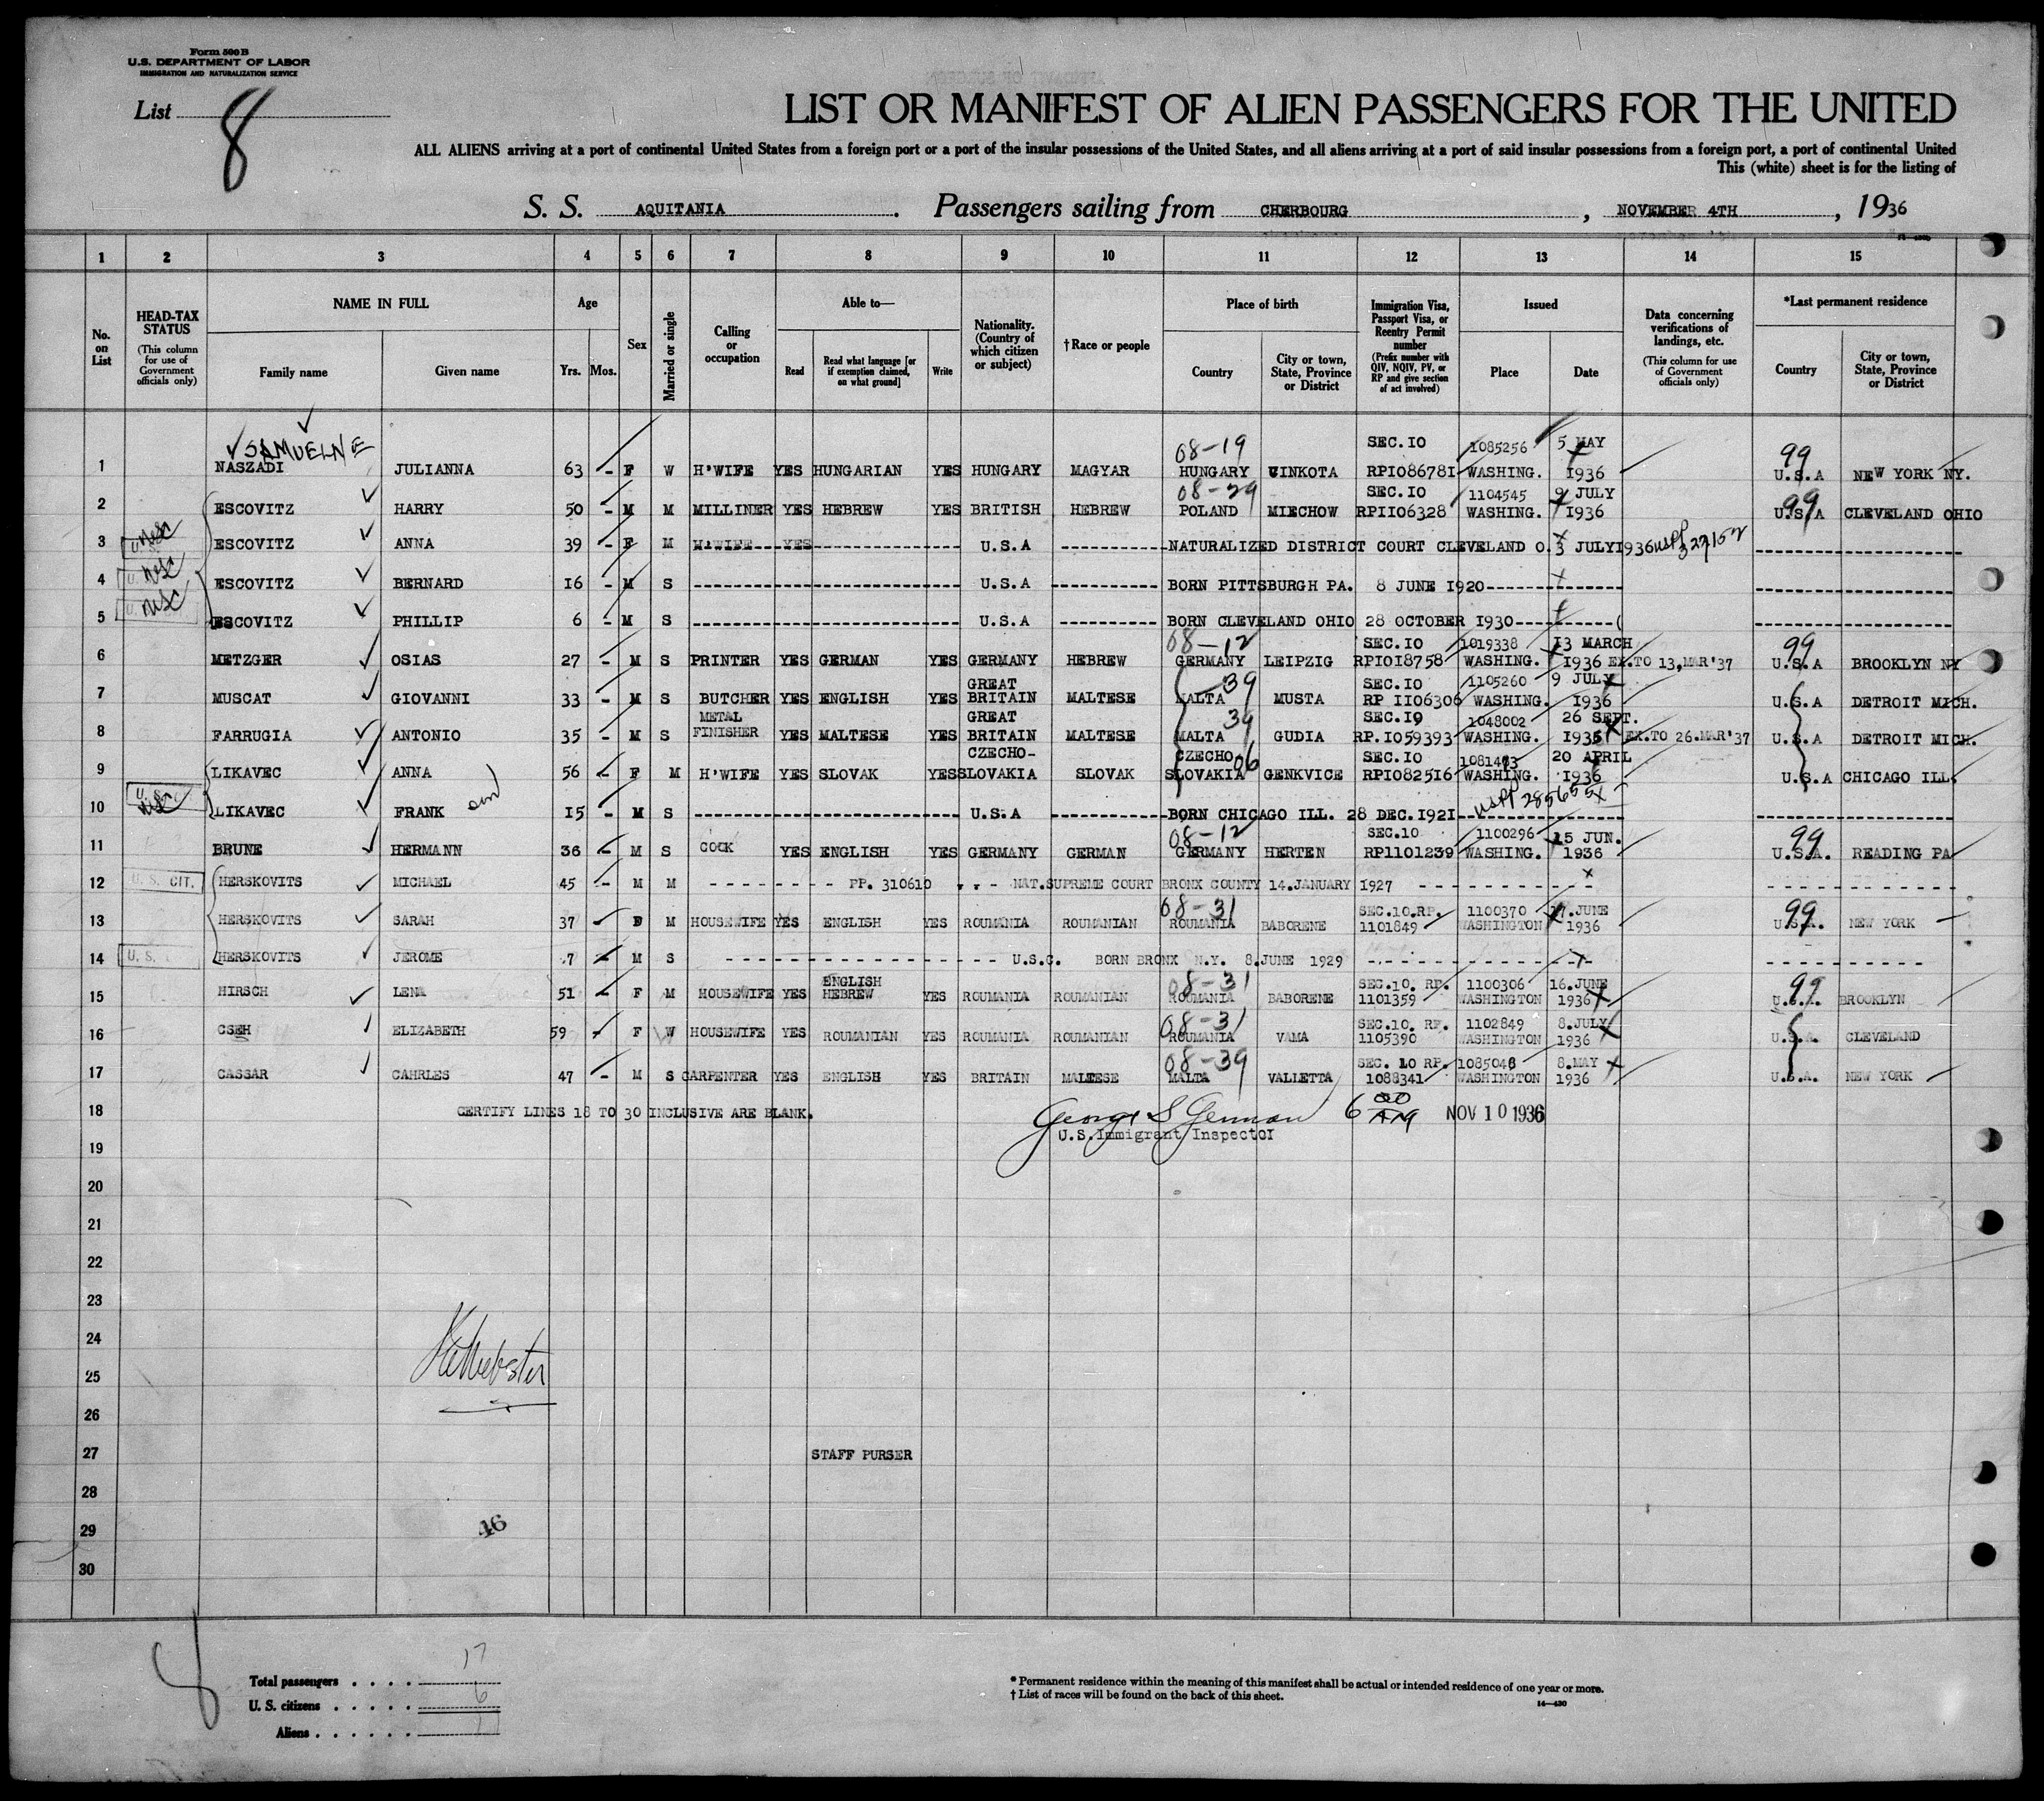 Form 500 B
U.S. DEPARTMENT OF LABOR
IMMIGRATION AND NATURALIZATION SERVICE
List 8
LIST OR MANIFEST OF ALIEN PASSENGERS FOR THE UNITED
ALL ALIENS arriving at a port of continental United States from a foreign port or a port of the insular possessions of the United States, and all aliens arriving at a port of said insular possessions from a foreign port, a port of continental United
This (white) sheet is for the listing of
S. S. AQUITANIA. Passengers sailing from CHERBOURG, NOVEMBER 4TH, 1936
1 2 3 4 5 6 7 8 9 10 11 12 13 14 15
No. on List
HEAD-TAX STATUS (This column for use of Government officials only)
NAME IN FULL Family name Given name
Age Yrs. Mos.
Sex
Married or single
Calling or occupation
Able to— Read Read what language [or if exemption claimed, on what ground] Write
Nationality. (Country of which citizen or subject)
†Race or people
Place of birth Country City or town, State, Province or District
Immigration Visa, Passport Visa, or Reentry Permit number (Prefix number with QIV, NQIV, PV, or RP and give section of act involved)
Issued Place Date
Data concerning verifications of landings, etc. (This column for use of Government officials only)
*Last permanent residence Country City or town, State, Province or District
SAMUELNE 08-19 SEC.IO 1085256 5 MAY 99
1 NASZADI JULIANNA 63 - F W H'WIFE YES HUNGARIAN YES HUNGARY MAGYAR HUNGARY UINKOTA RPIO8678I WASHING. I936 U.S.A NEW YORK NY.
08-29 SEC.IO 1104545 9 JULY 99
2 ESCOVITZ HARRY 50 - M M MILLINER YES HEBREW YES BRITISH HEBREW POLAND MIECHOW RPIIO6328 WASHING. I936 U.S.A CLEVELAND OHIO
3 USC ESCOVITZ ANNA 39 - F M H'WIFE YES U.S.A NATURALIZED DISTRICT COURT CLEVELAND O. 3 JULYI936
4 USC ESCOVITZ BERNARD I6 - M S U.S.A BORN PITTSBURGH PA. 8 JUNE I920
5 USC ESCOVITZ PHILLIP 6 - M S U.S.A BORN CLEVELAND OHIO 28 OCTOBER I930
08-12 SEC.IO 1019338 I3 MARCH 99
6 METZGER OSIAS 27 - M S PRINTER YES GERMAN YES GERMANY HEBREW GERMANY LEIPZIG RPIOI8758 WASHING. I936 EX.TO 13,MAR'37 U.S.A BROOKLYN NY
GREAT 39 SEC.IO 1105260 9 JULY
7 MUSCAT GIOVANNI 33 - M S BUTCHER YES ENGLISH YES BRITAIN MALTESE MALTA MUSTA RP IIO6306 WASHING. I936 U.S.A DETROIT MICH.
METAL GREAT 39 SEC.I9 1048002 26 SEPT.
8 FARRUGIA ANTONIO 35 - M S FINISHER YES MALTESE YES BRITAIN MALTESE MALTA GUDIA RP.IO59393 WASHING. I935 EX.TO 26.MAR'37 U.S.A DETROIT MICH.
CZECHO- CZECHO 06 SEC.IO 20 APRIL
9 LIKAVEC ANNA 56 - F M H'WIFE YES SLOVAK YES SLOVAKIA SLOVAK SLOVAKIA GENKVICE RPIO825I6 WASHING. I936 U.S.A CHICAGO ILL.
USPP
10 USC LIKAVEC FRANK son I5 - M S U.S.A BORN CHICAGO ILL. 28 DEC.I92I
08-12 SEC.10 1100296 15 JUN. 99
11 BRUNE HERMANN 36 - M S COOK YES ENGLISH YES GERMANY GERMAN GERMANY HERTEN RP1101239 WASHING. 1936 U.S.A. READING PA
12 U.S. CIT. HERSKOVITS MICHAEL 45 - M M PP. 310610 NAT.SUPREME COURT BRONX COUNTY 14.JANUARY 1927
08-31 SEC.10.RP. 1100370 17.JUNE 99
13 HERSKOVITS SARAH 37 - F M HOUSEWIFE YES ENGLISH YES ROUMANIA ROUMANIAN ROUMANIA BABORENE 1101849 WASHINGTON 1936 U.S.A. NEW YORK
14 U.S. HERSKOVITS JEROME 7 - M S U.S.C. BORN BRONX N.Y. 8.JUNE 1929
ENGLISH 08-31 SEC.10. RP. 1100306 16.JUNE 99
15 HIRSCH LENA 51 - F M HOUSEWIFE YES HEBREW YES ROUMANIA ROUMANIAN ROUMANIA BABORENE 1101359 WASHINGTON 1936 U.S.A. BROOKLYN
08-31 SEC.10. RP. 1102849 8.JULY
16 CSEH ELIZABETH 59 - F W HOUSEWIFE YES ROUMANIAN YES ROUMANIA ROUMANIAN ROUMANIA VAMA 1105390 WASHINGTON 1936 U.S.A. CLEVELAND
08-39 SEC. 10 RP. 1085048 8.MAY
17 CASSAR CAHRLES 47 - M S CARPENTER YES ENGLISH YES BRITAIN MALTESE MALTA VALLETTA 1088341 WASHINGTON 1936 U.S.A. NEW YORK
18 CERTIFY LINES 18 TO 30 INCLUSIVE ARE BLANK. George S German 6 NOV 10 1936
U.S.Immigrant Inspector
19
20
21
22
23
24
25
26
27 STAFF PURSER
28
29
46
30
8
Total passengers 17
U. S. citizens 6
Aliens 11
* Permanent residence within the meaning of this manifest shall be actual or intended residence of one year or more.
† List of races will be found on the back of this sheet.
14—430